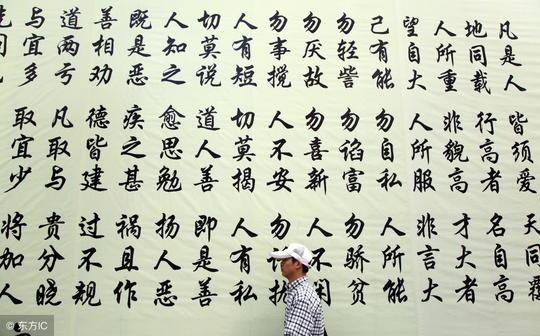 凡是人皆须爱天同覆
地同载行高者名自高
人所重非貌高才大者
望自大人所服非言大
己有能勿自私人所能
勿轻訾勿谄富勿骄贫
勿厌故勿喜新人不闲
勿事搅人不安勿
人有短切莫揭人有私
切莫说道人善即是善
人知之愈思勉扬人恶
既是恶疾之甚祸且作
善相劝德皆建过不规
道两亏凡取与贵分晓
与宜多取宜少将加人
东方IC